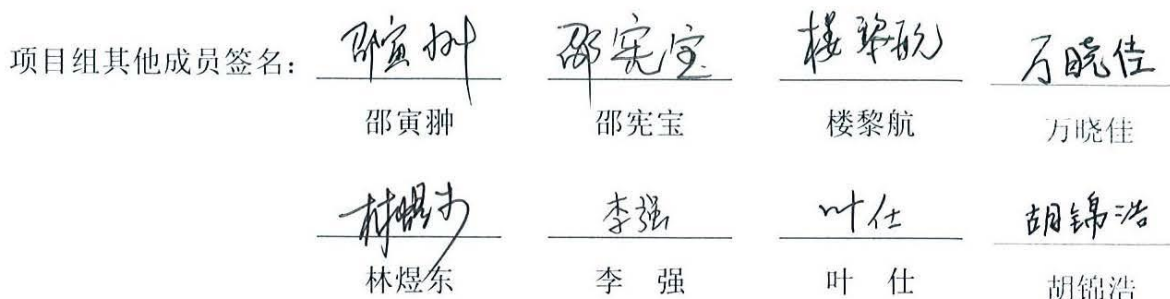 项目组其他成员签名： 邵寅翀 邵宪宝 楼黎航 万晓佳
邵寅翀 邵宪宝 楼黎航 万晓佳
林煜东 李强 叶仕 胡锦浩
林煜东 李 强 叶 仕 胡锦浩